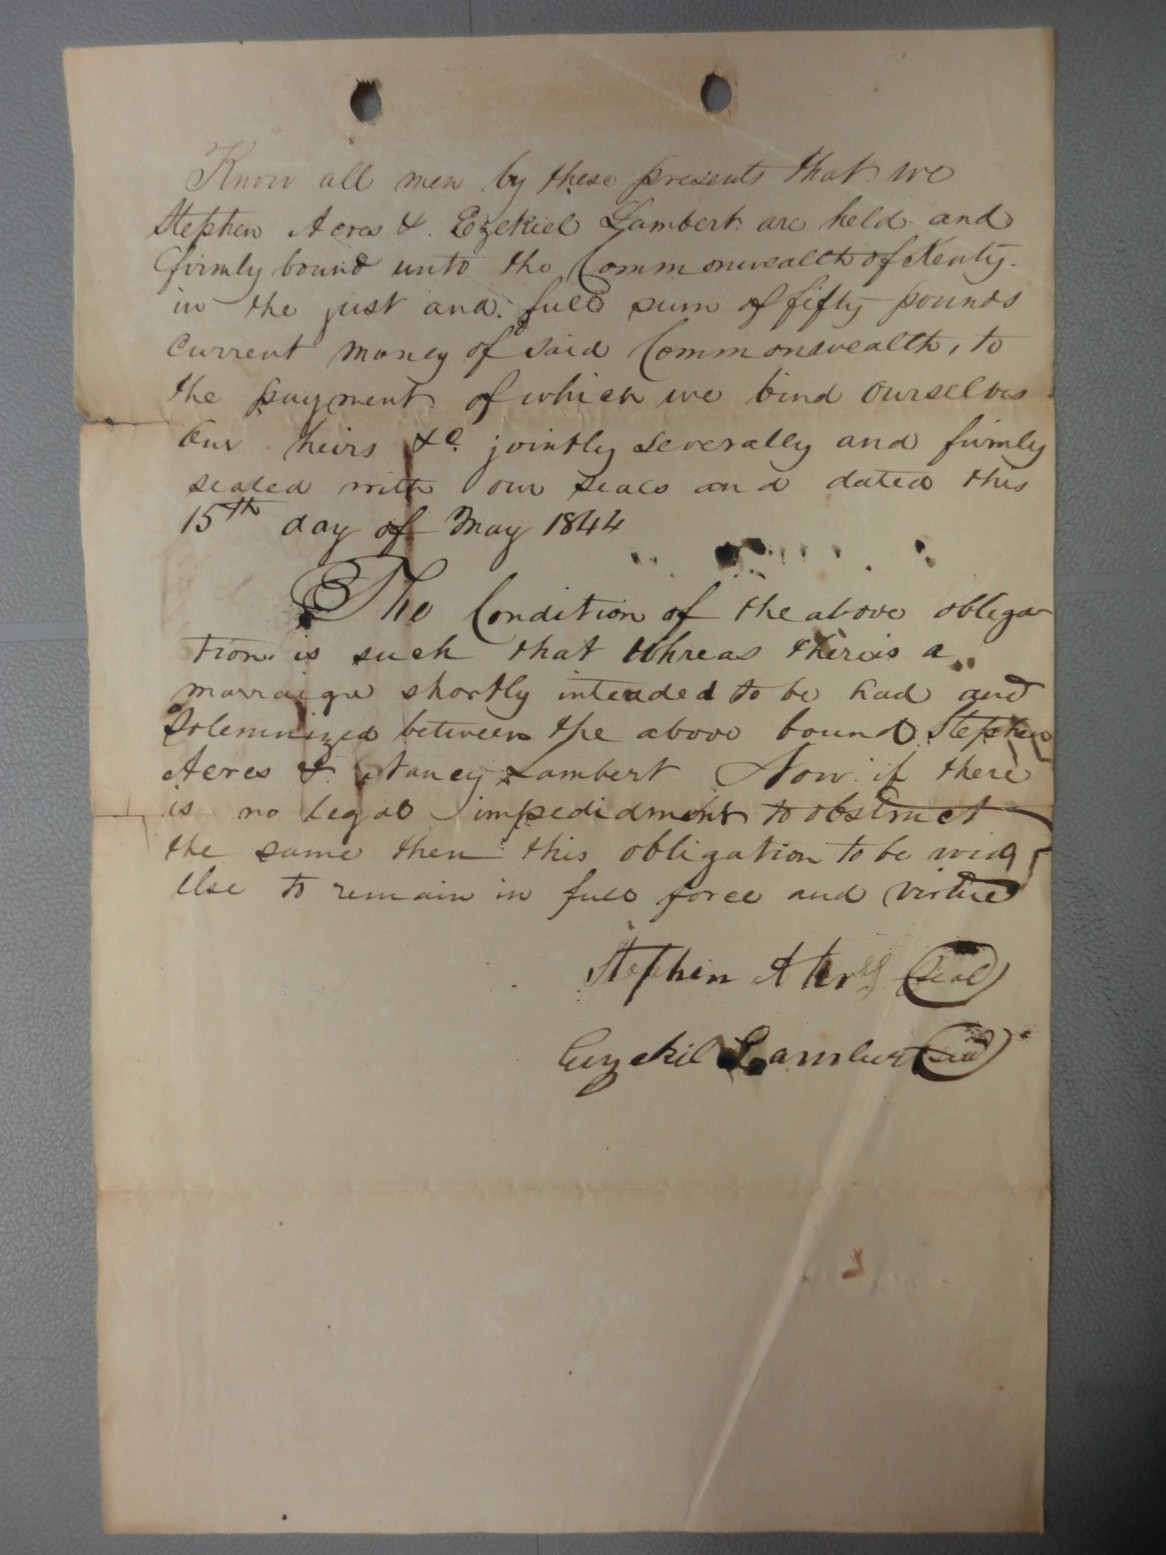 Know all men by these presents that we
Stephen Acres & Ezekiel Lambert are held and
firmly bound unto the Commonwealth of Kenty.
in the just and full sum of fifty pounds
Current money of said Commonwealth, to
the payment of which we bind ourselves
our heirs &c. jointly severally and firmly
sealed with our seals and dated this
15th day of May 1844
The Condition of the above obliga
tion is such that Whreas there is a
marraige shortly intended to be had and
Solemnized between the above bound Stephen
Acres & Nancy Lambert Now if there
is no legal impedidment to obstruct
the same then this obligation to be void
Else to remain in full force and virtue
Stephin (Seal)
Eezekil Lambert (Seal)